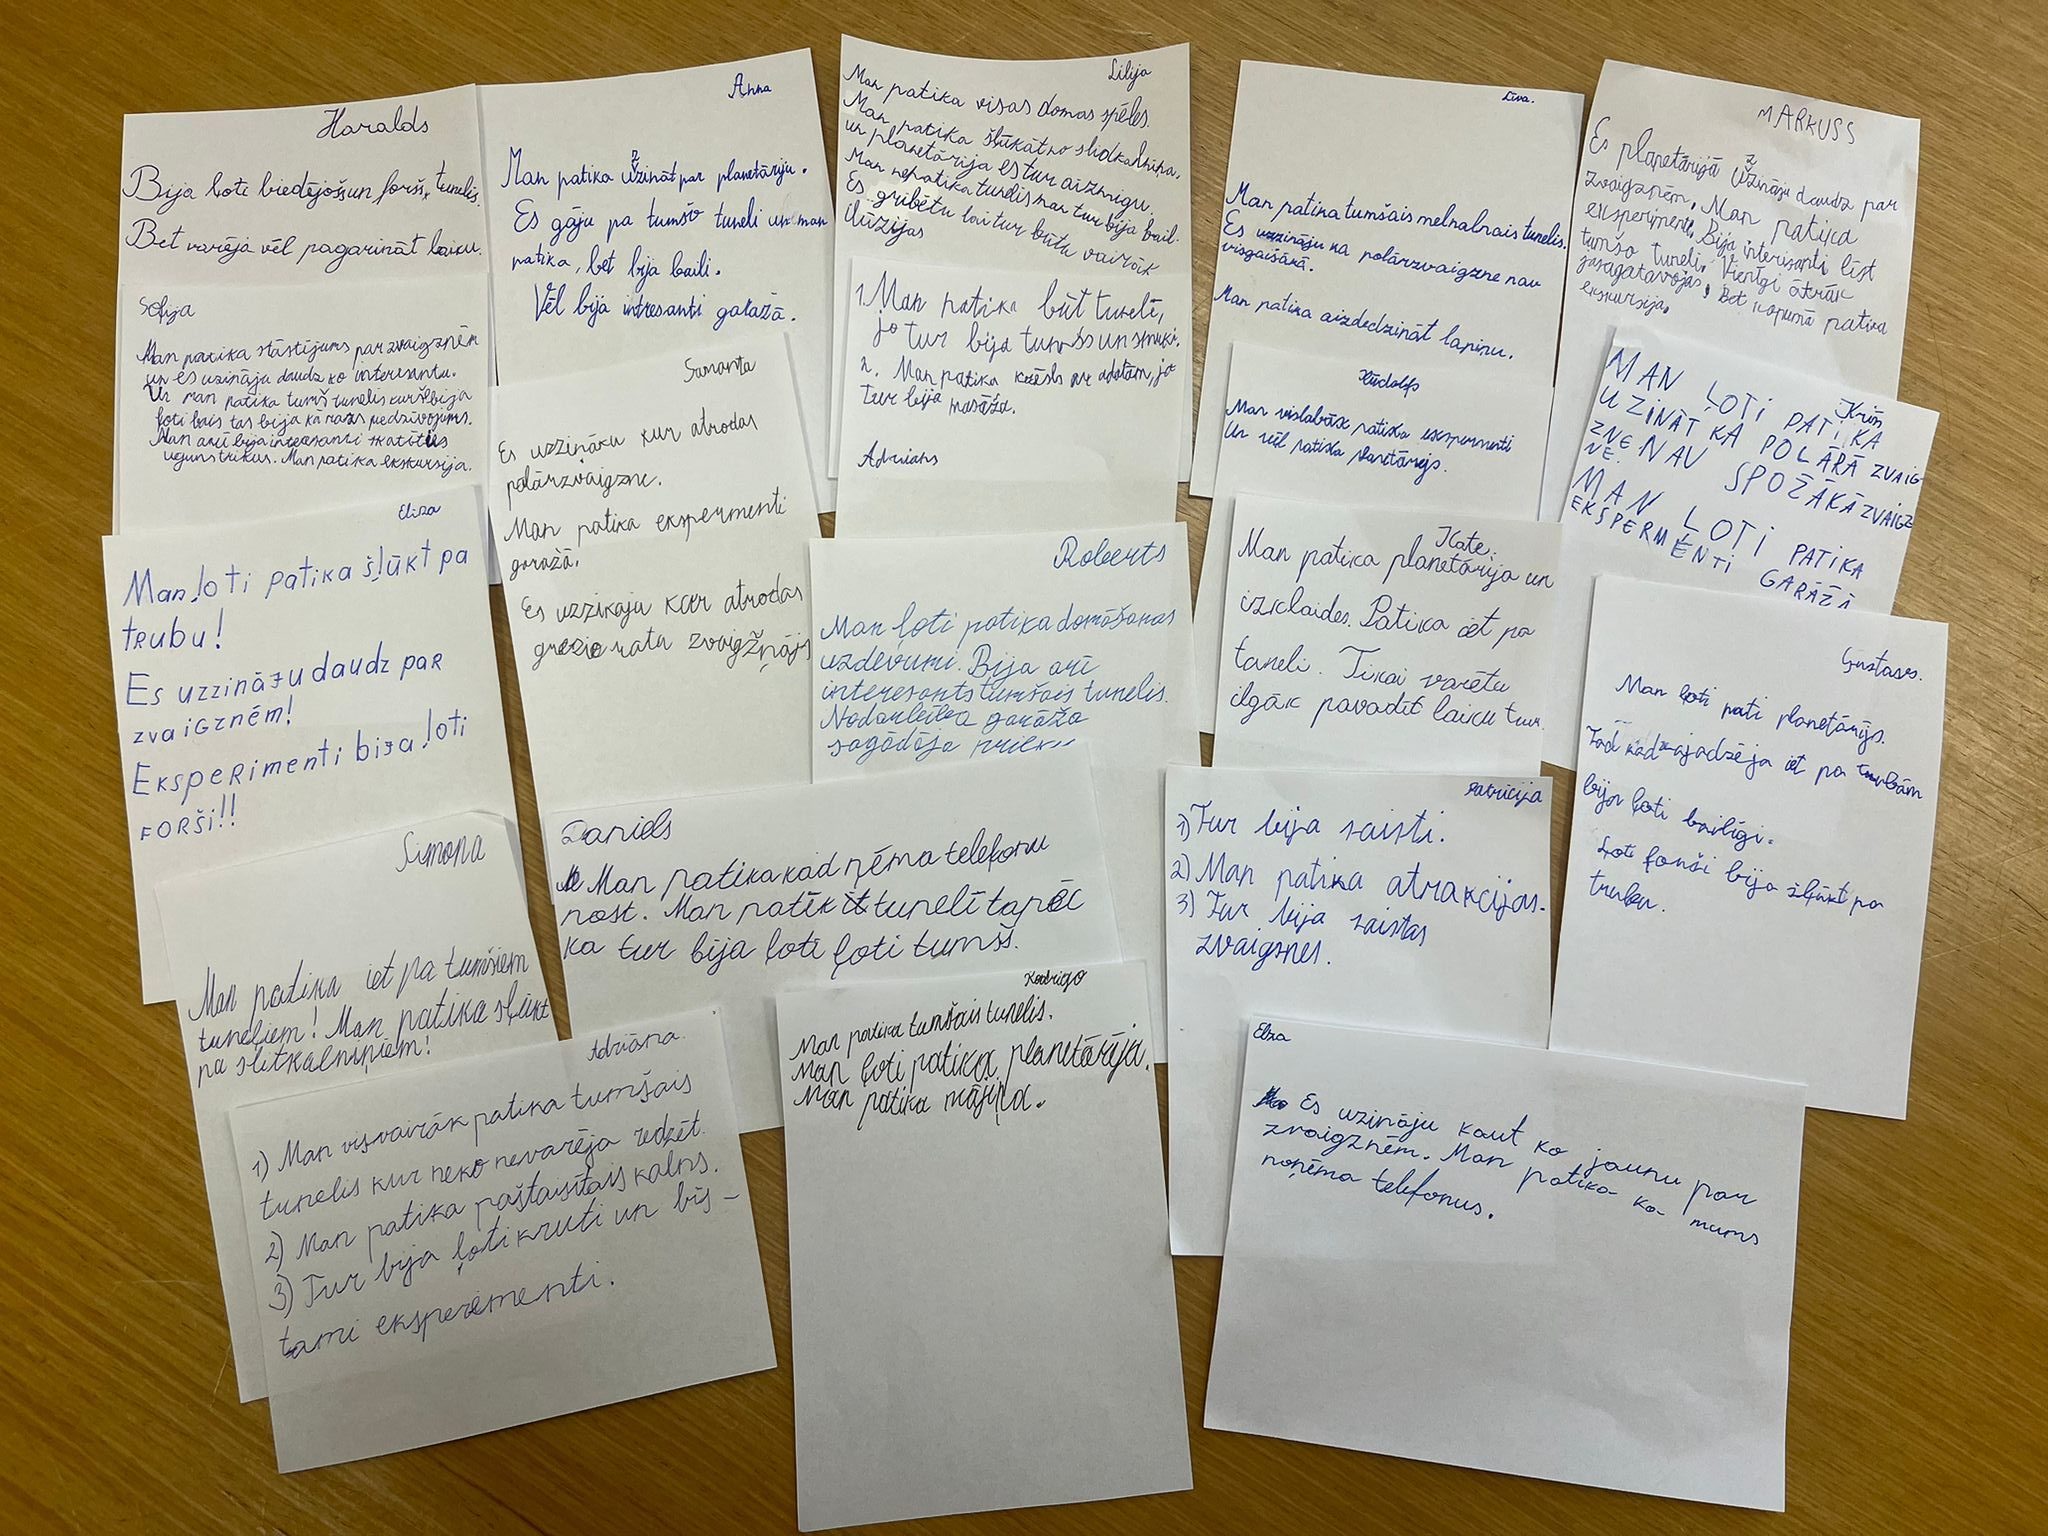 Haralds
Bija ļoti biedējošs un foršs tunelis.
Bet varēja vēl pagarināt laiku.
Anna
Man patika uzzināt par planetāriju.
Es gāju pa tumšo tuneli un man
patika, bet bija baili.
Vēl bija intresanti garažā.
Lilija
Man patika visas domas spēles.
Man patika šļūkāt no slidkalniņa,
un planetārija es tur aizmigu.
Man nepatika tunelis man tur bija bail.
Es gribētu lai tur būtu vairāk
ilūzijas
Līva.
Man patika tumšais melnalnais tunelis.
Es uzzināju ka polārzvaigzne nav
visgaišākā.
Man patika aizdedzināt lapiņu.
MARKUSS
Es planetārijā uzzināju daudz par
zvaigznēm. Man patika
eksperimenti. Bija interisanti līst
tumšo tuneli. Vienīgi ātrāk
jāsagatavojas. Bet kopumā patika
ekskursija.
Sofija
Man patika stāstījums par zvaigznēm
un es uzzināju daudz ko interesantu.
Un man patika tumš tunelis kurš bija
ļoti bais tas bija kā mazs piedzīvojums.
Man arī bija interesanti skatītie
ugunstrikus. Man patika ekskursija.
Samanta
Es uzzināku kur atrodas
polārzvaigzne.
Man patika eksperimenti
garažā.
Es uzzikaju kur atrodas
rata zvaigžņājs
1. Man patika būt tunelī,
jo tur bija tumšs un smuki.
2. Man patika krēsls ar adatām, jo
tur bija masāža.
Adrians
Rūdolfs
Man vislabāk patika eksperimenti
Un vēl patika planetārejs.
Krišs
MAN ĻOTI PATIKA
UZINĀT KA POLĀRĀ ZVAIG-
ZNE NAV SPOŽĀKĀ ZVAIGZ
NE.
MAN ĻOTI PATIKA
EKSPERMENTI GARĀŽĀ
Eliza
Man ļoti patika šļūkt pa
trubu!
Es uzzināju daudz par
zvaigznēm!
Eksperimenti bija ļoti
forši!!
Roberts
Man ļoti patika domāšanas
uzdevumi. Bija arī
interesants tumšais tunelis.
Nodarbība garāžā
sagādāja prieku
Kate.
Man patika planetārija un
izklaides. Patika iet pa
taneli. Tikai varētu
ilgāk pavadīt laiku tur.
Gustavs.
Man ļoti pati planetārijs.
Tad kad vajadzēja iet pa turbām
bija ļoti bailīgi.
Ļoti forši bija šļūkt pa
trubu.
Simona
Man patika iet pa tumšiem
tuneļiem! Man patika šļūkt
pa slitkalniņiem!
Daniels
Man patika kad ņēma telefonu
nost. Man patīk it tunelī tapēc
ka tur bija ļoti ļoti tumšs.
Patricija
1) Tur bija saisti.
2) Man patika atrakcijas.
3) Tur bija saistas
zvaigsnes.
Adriāna.
1) Man visvairāk patika tumšais
tunelis kur neko nevarēja redzēt.
2) Man patika paštaisītais kalns.
3) Tur bija ļoti kruti un bīs-
tami eksperementi.
Rodrigo
Man patika tumšais tunelis.
Man ļoti patika planetārija.
Man patika
Elza
Es uzināju kaut ko jaunu par
zvaigznēm. Man patika ko mums
noņēma telefonus.